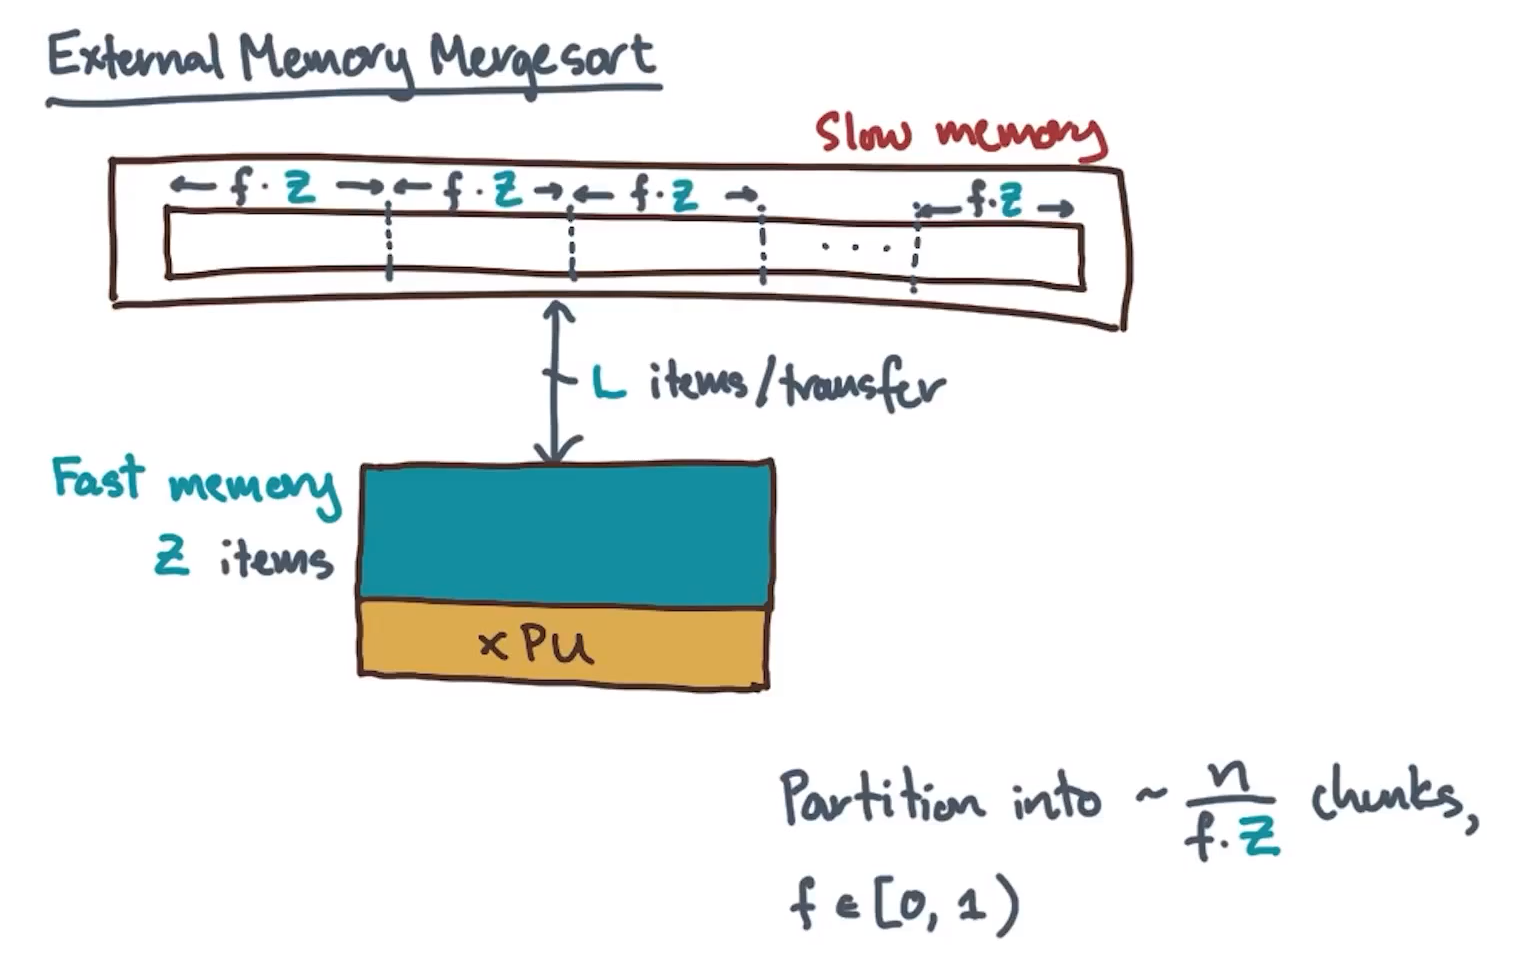 External Memory Mergesort
Slow memory
← f · Z → ← f · Z → ← f · Z → ← f · Z →
. . .
L items/transfer
Fast memory
Z items
xPU
Partition into ~ n / f · Z chunks,
f ∈ [0, 1)